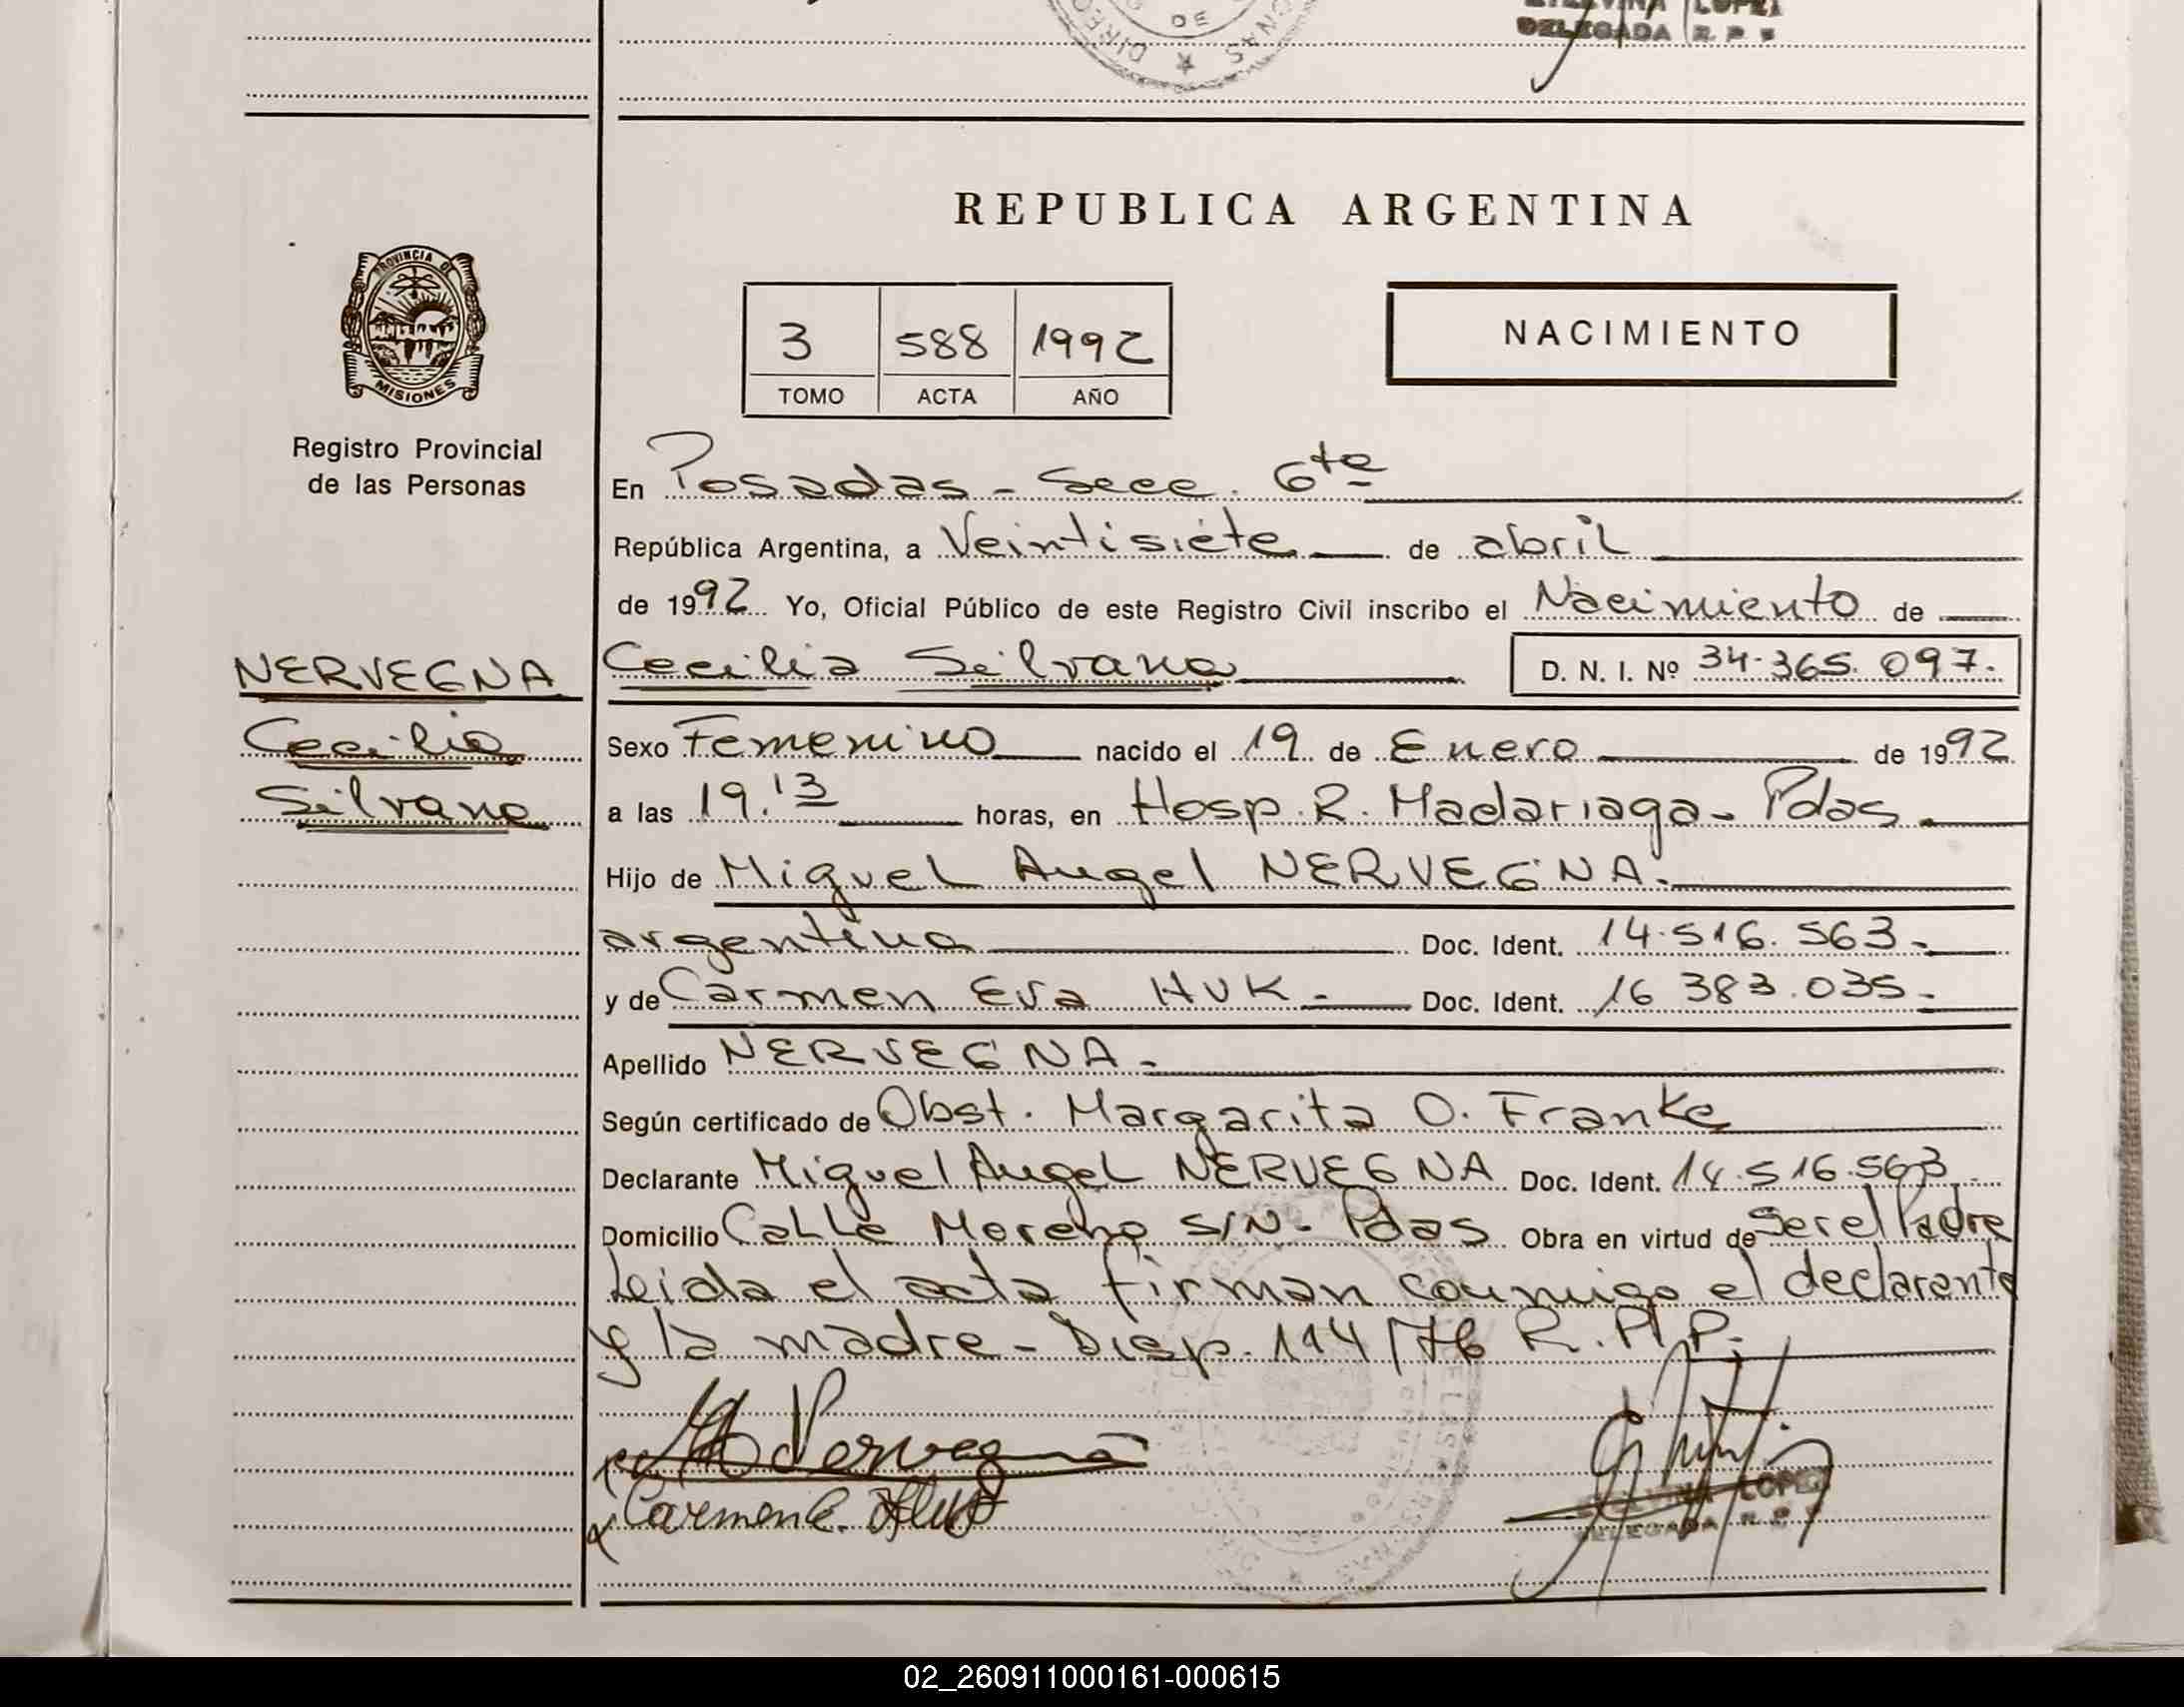 DE
LOPEZ
DELEGADA R. P. P.
REPUBLICA ARGENTINA
PROVINCIA DE
MISIONES
3 588 1992
TOMO ACTA AÑO
NACIMIENTO
Registro Provincial
de las Personas
En Posadas - Secc. 6ta
República Argentina, a Veintisiete de abril
de 1992 Yo, Oficial Público de este Registro Civil inscribo el Nacimiento de
NERVEGNA
Cecilia
Silvana
Cecilia Silvana D. N. I. Nº 34.365.097.
Sexo Femenino nacido el 19 de Enero de 1992
a las 19.13 horas, en Hosp. R. Madariaga - Pdas.
Hijo de Miguel Angel NERVEGNA.
argentina Doc. Ident. 14.516.563.-
y de Carmen Eva HUK.- Doc. Ident. 16 383.035.-
Apellido NERVEGNA.-
Según certificado de Obst. Margarita O. Franke
Declarante Miguel Angel NERVEGNA Doc. Ident. 14.516.563.-
Domicilio Calle Moreno S/N - Pdas Obra en virtud de Ser el Padre
Leida el acta firman conmigo el declarante
y la madre - Disp. 114/76 R.P.P.
Nervegna
Carmen E. Huk
LOPEZ
DELEGADA R. P. P.
02_260911000161-000615